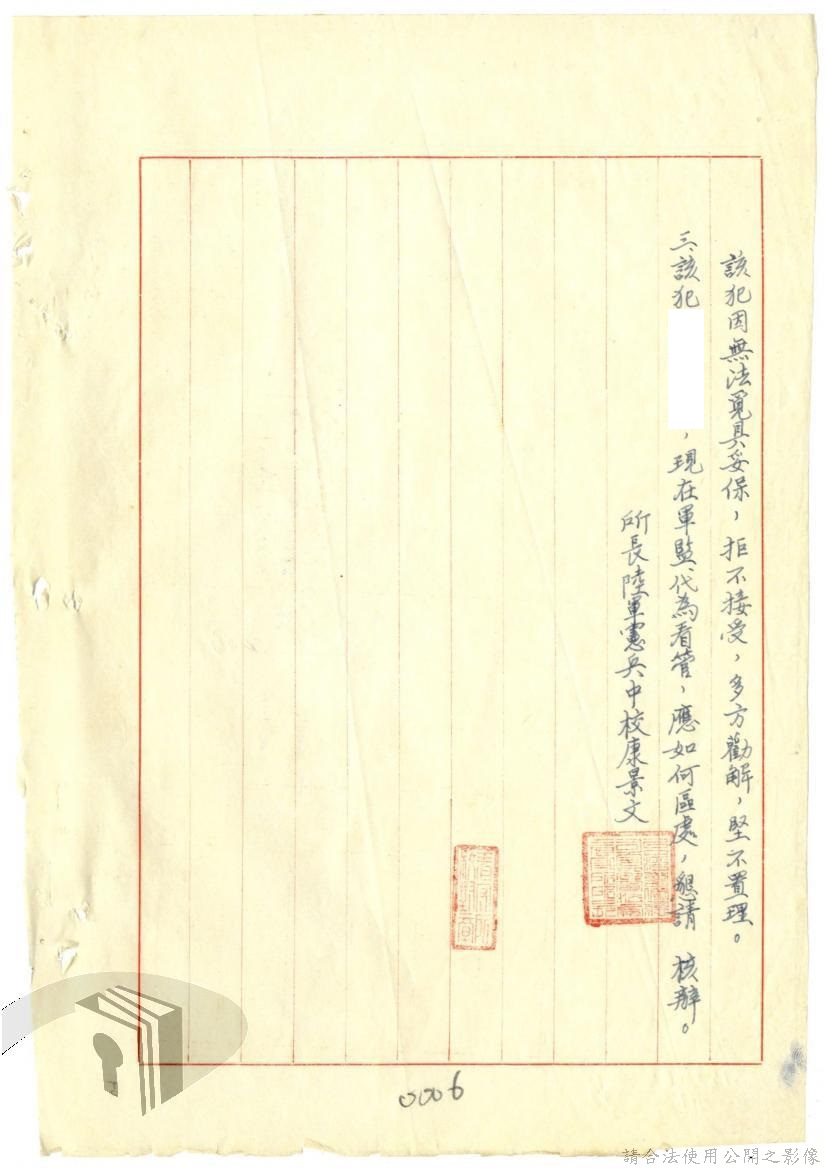 該犯因無法覓具妥保,拒不接受,多方勸解,堅不置理。
三、該犯 ,現在軍監代為看管,應如何區處,懇請 核辦。
所長陸軍憲兵中校康景文
0006
請合法使用公開之影像